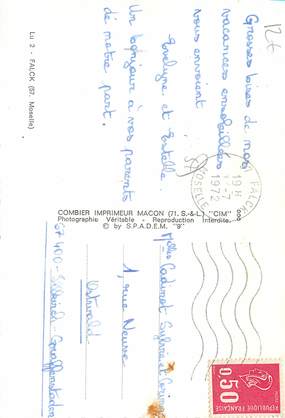 126
Lu 2 - FALCK (57. Moselle)
Grosses bises de nos
vacances ensoleillées
vous envoient
Evelyne et Estelle.
Un bonjour à vos parents
de notre part.
FALCK
19H
-7
1972
MOSELLE
COMBIER IMPRIMEUR MACON (71. S.-&-L.) "CIM"
Photographie Véritable - Reproduction Interdite.
© by S.P.A.D.E.M. "9"
Mlles Sylvie et
1, rue Neuve
Ostwald
67 400 - Illkirch Graffenstaden
0,50
FRANÇAISE